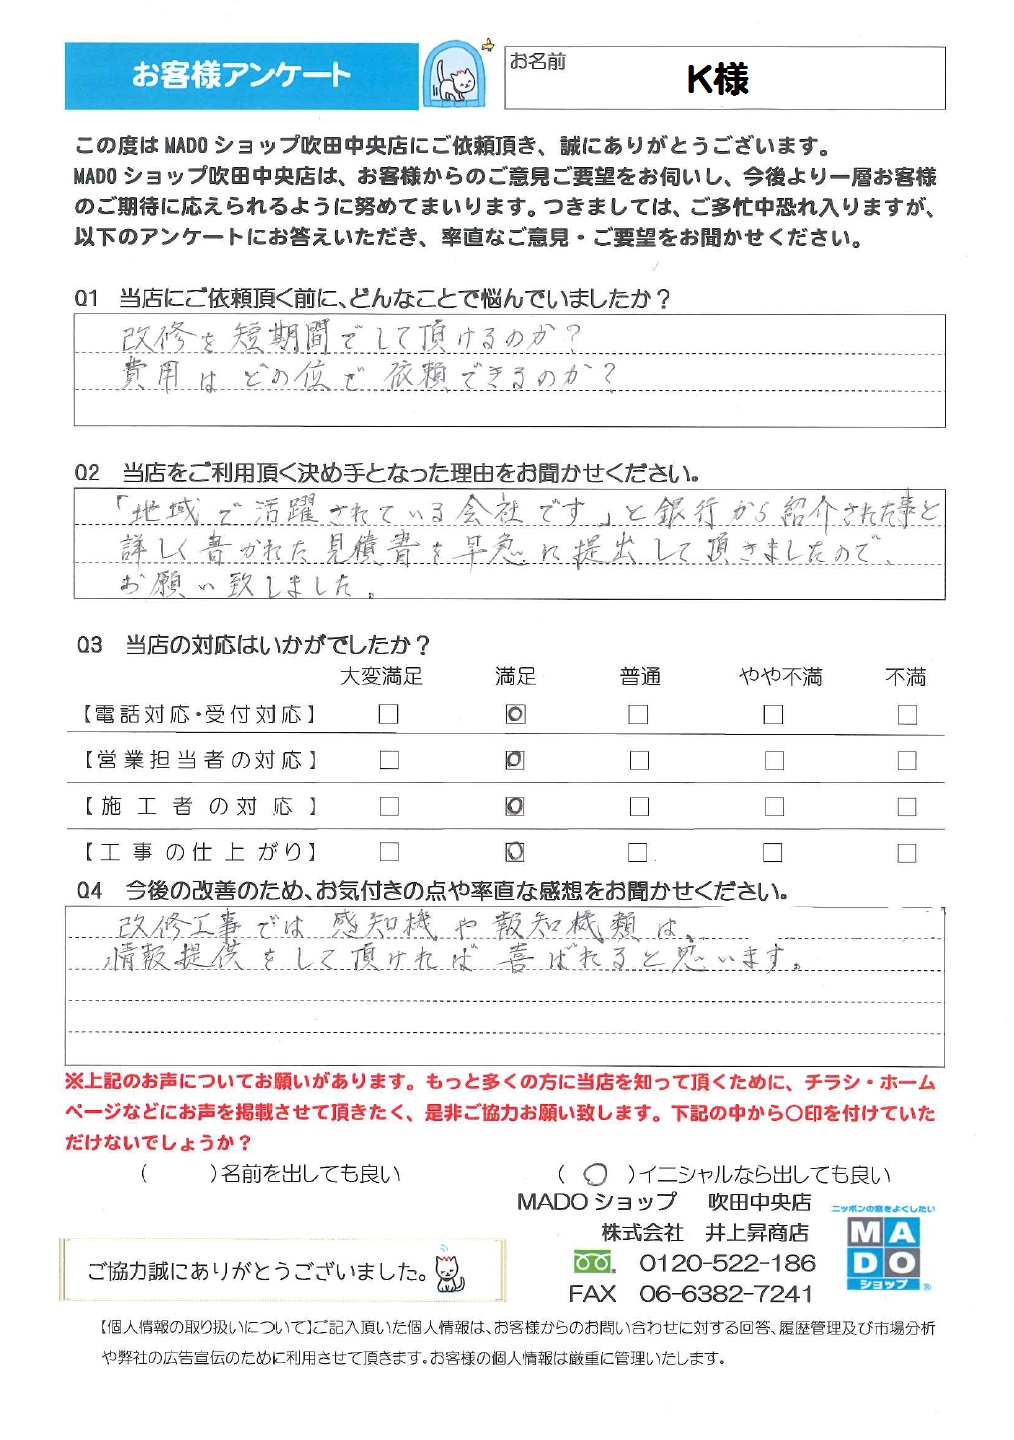 お客様アンケート
お名前
K様
この度は MADO ショップ吹田中央店にご依頼頂き、誠にありがとうございます。
MADO ショップ吹田中央店は、お客様からのご意見ご要望をお伺いし、今後より一層お客様
のご期待に応えられるように努めてまいります。つきましては、ご多忙中恐れ入りますが、
以下のアンケートにお答えいただき、率直なご意見・ご要望をお聞かせください。
Q1 当店にご依頼頂く前に、どんなことで悩んでいましたか？
改修を短期間でして頂けるのか？
費用はどの位で依頼できるのか？
Q2 当店をご利用頂く決め手となった理由をお聞かせください。
「地域で活躍されている会社です」と銀行から紹介された事と
詳しく書かれた見積書を早急に提出して頂きましたので、
お願い致しました。
Q3 当店の対応はいかがでしたか？
大変満足 満足 普通 やや不満 不満
【電話対応・受付対応】
【営業担当者の対応】
【施工者の対応】
【工事の仕上がり】
Q4 今後の改善のため、お気付きの点や率直な感想をお聞かせください。
改修工事では感知機や報知機類は、
情報提供をして頂ければ喜ばれると思います。
※上記のお声についてお願いがあります。もっと多くの方に当店を知って頂くために、チラシ・ホーム
ページなどにお声を掲載させて頂きたく、是非ご協力お願い致します。下記の中から〇印を付けていた
だけないでしょうか？
（　　）名前を出しても良い （ 〇 ）イニシャルなら出しても良い
MADO ショップ 吹田中央店
株式会社 井上昇商店
0120-522-186
FAX 06-6382-7241
ニッポンの窓をよくしたい
MADO
ショップ®
ご協力誠にありがとうございました。
【個人情報の取り扱いについて】ご記入頂いた個人情報は、お客様からのお問い合わせに対する回答、履歴管理及び市場分析
や弊社の広告宣伝のために利用させて頂きます。お客様の個人情報は厳重に管理いたします。